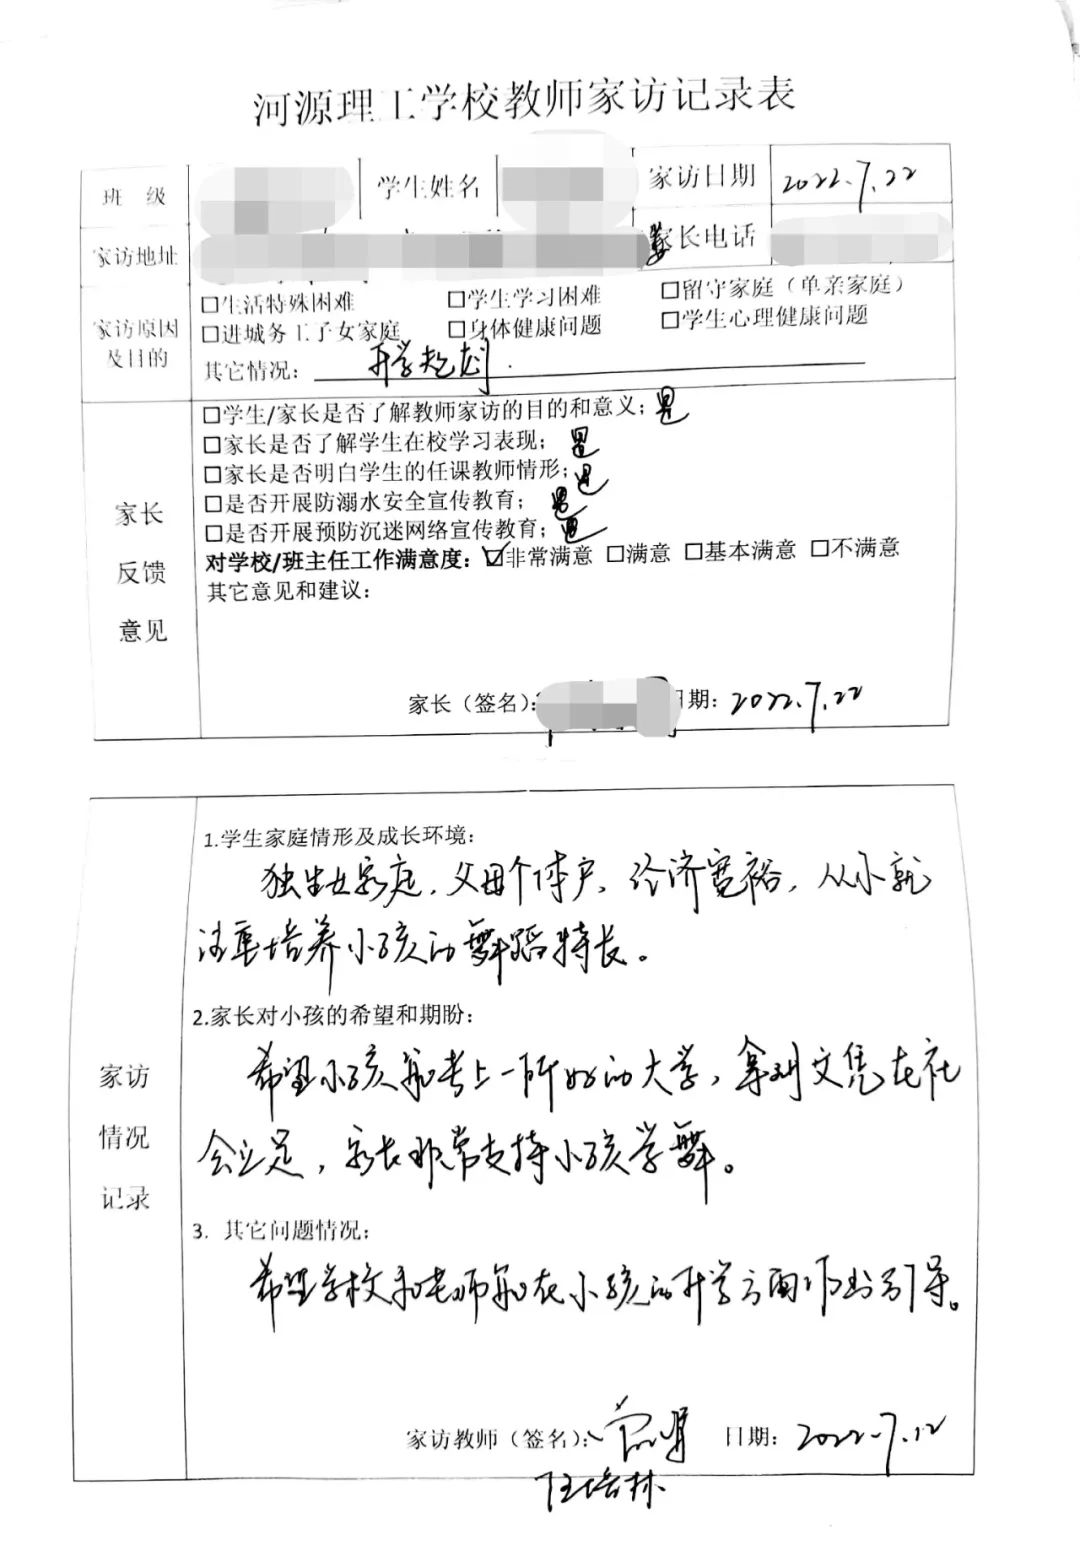 河源理工学校教师家访记录表
班 级 学生姓名 家访日期 2022.7.22
家访地址 家长电话
家访原因及目的
□生活特殊困难 □学生学习困难 □留守家庭（单亲家庭）
□进城务工子女家庭 □身体健康问题 □学生心理健康问题
其它情况： 升学规划.
家长反馈意见
□学生/家长是否了解教师家访的目的和意义；是
□家长是否了解学生在校学习表现；是
□家长是否明白学生的任课教师情形；是
□是否开展防溺水安全宣传教育；是
□是否开展预防沉迷网络宣传教育；是
对学校/班主任工作满意度：☑非常满意 □满意 □基本满意 □不满意
其它意见和建议：
家长（签名）： 日期：2022.7.22
家访情况记录
1.学生家庭情形及成长环境：
独生女家庭，父母个体户，经济宽裕，从小就
注重培养小孩的舞蹈特长。
2.家长对小孩的希望和期盼：
希望小孩能考上一所好的大学，拿到文凭在社
会立足，家长非常支持小孩学舞。
3. 其它问题情况：
希望学校和老师能在小孩的升学方面作出引导。
家访教师（签名）： 日期：2022.7.22
汪培林